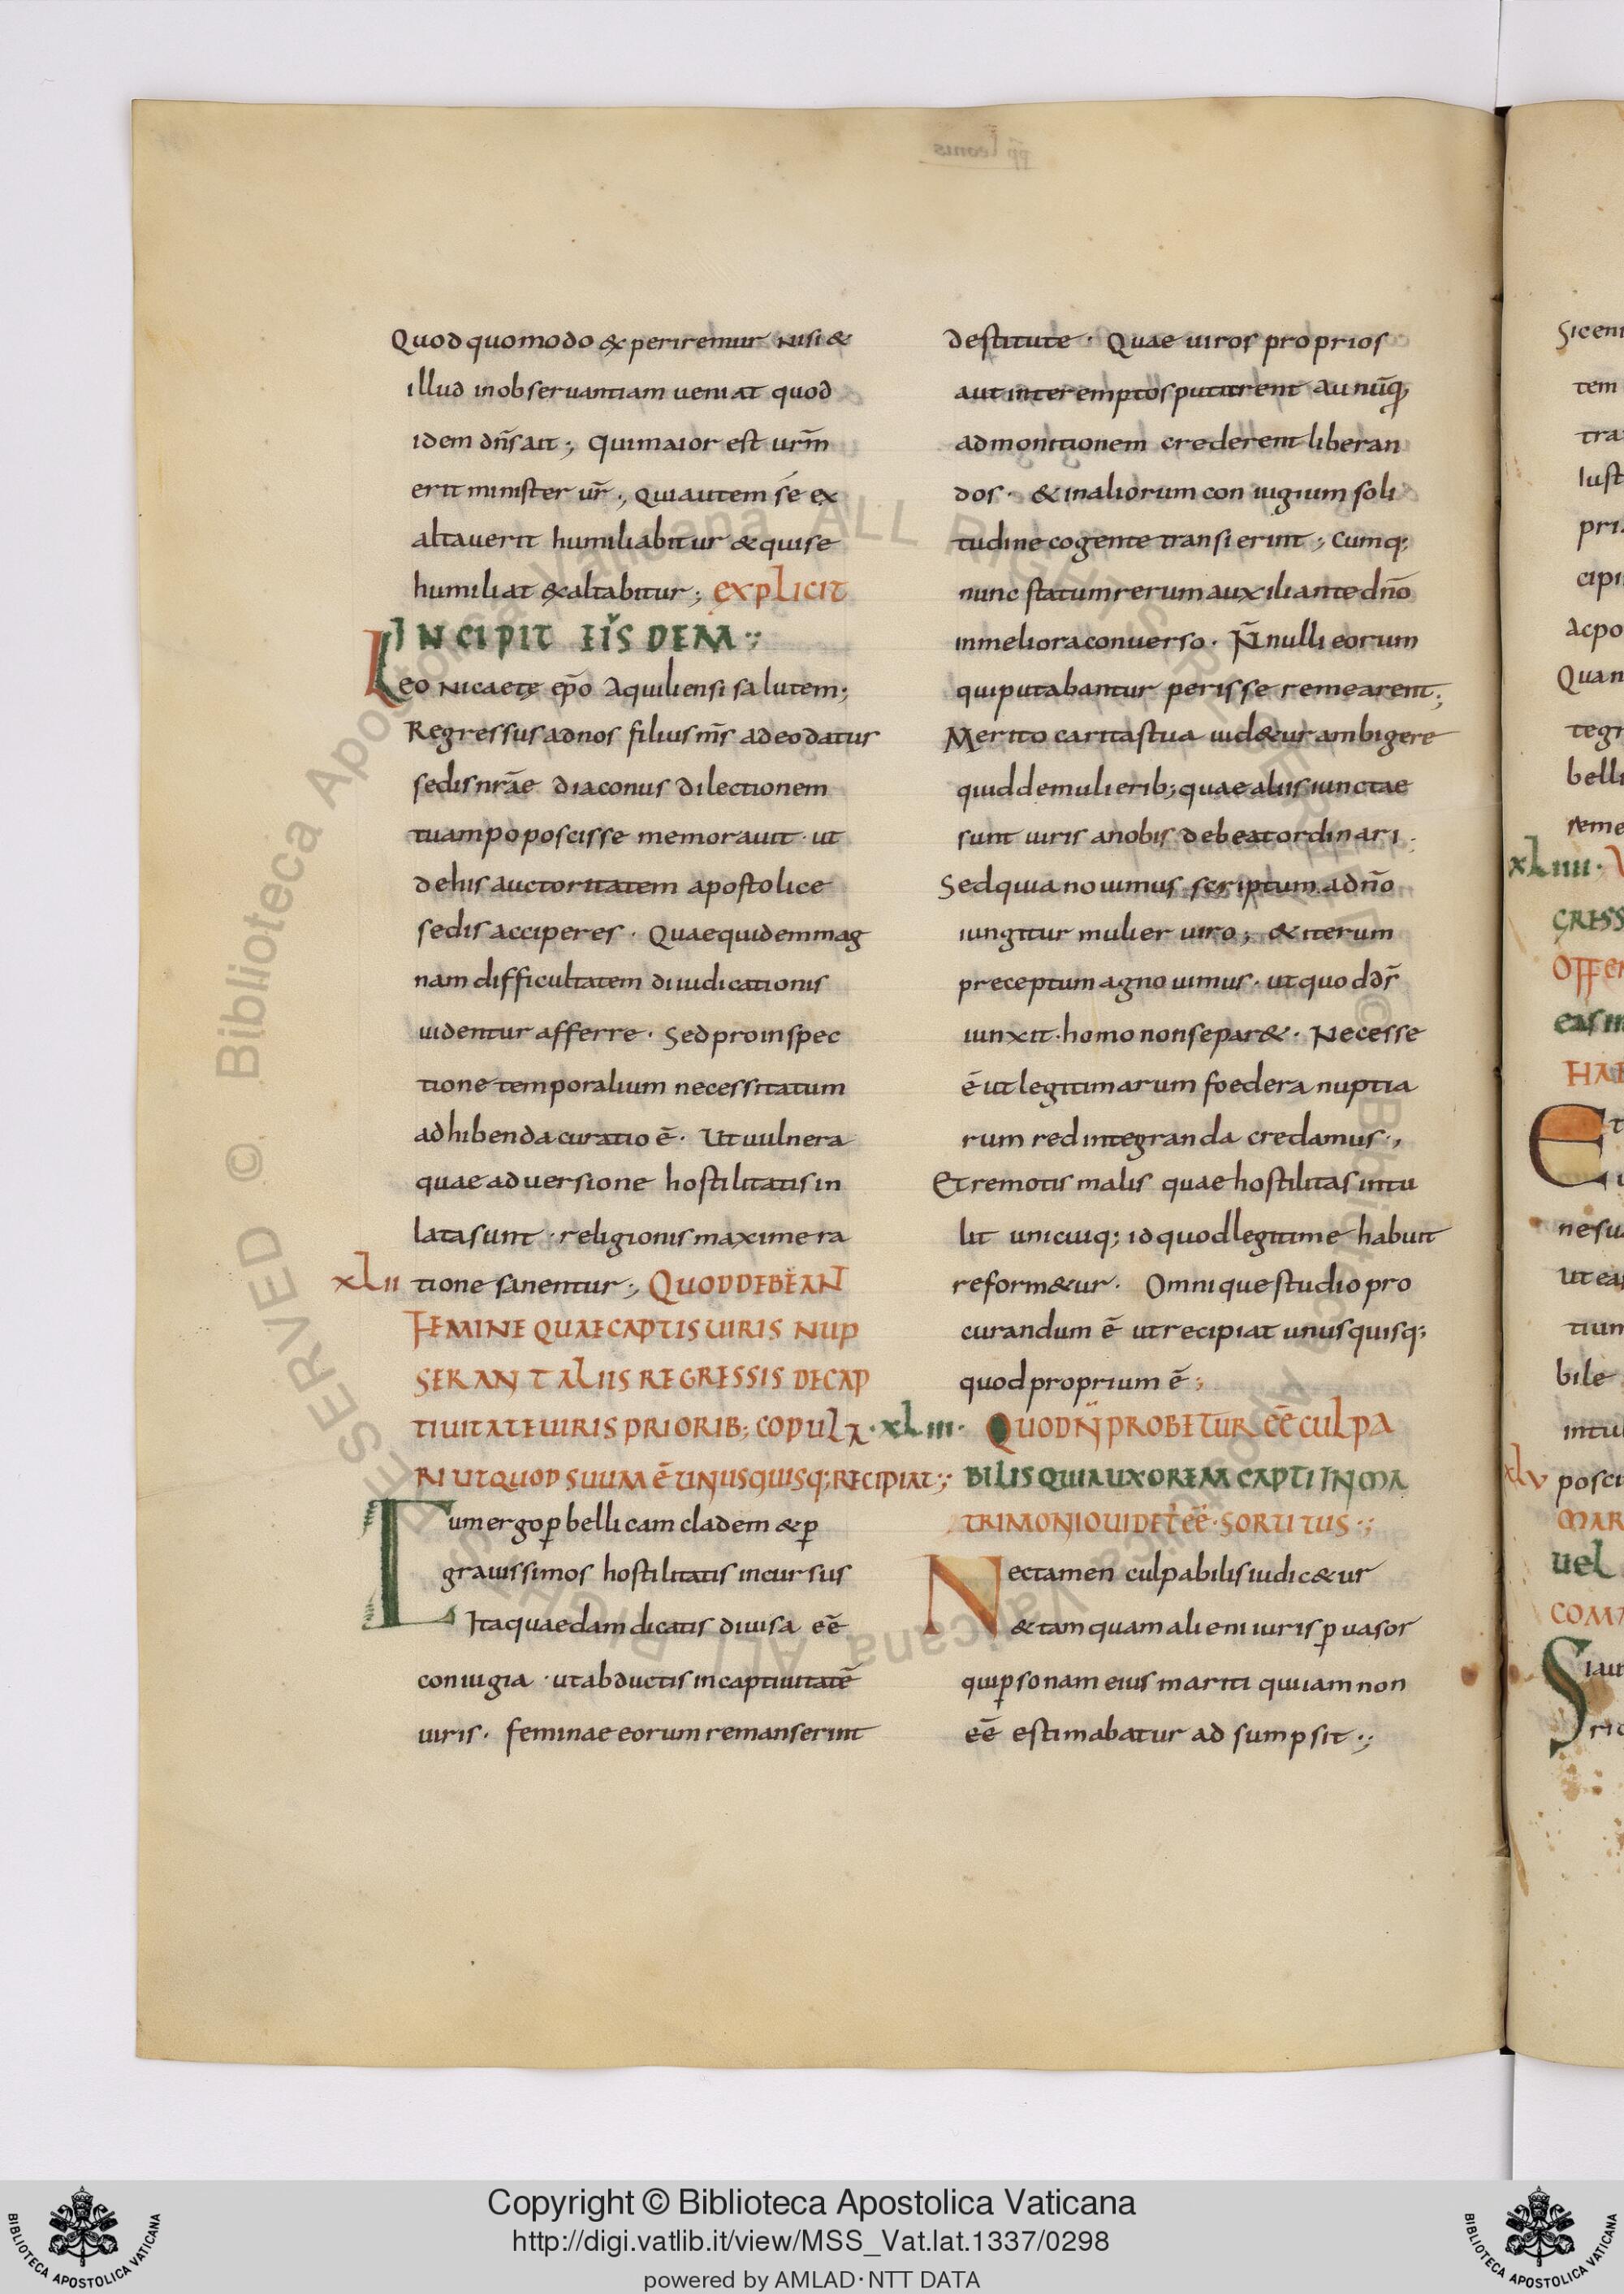 Quod quomodo experiremur nisi &
illud in observantiam veniat quod
idem dn̄s ait; Qui maior est urm̄
erit minister ur̄; Qui autem se ex
altaverit humiliabitur & qui se
humiliat exaltabitur; explicit
INCIPIT EIS DEM
Leo Nicaetę ep̄o Aquiliensi salutem;
Regressus ad nos filius m̄s adeodatus
sedis nr̄ae diaconus dilectionem
tuam poposcisse memoravit · ut
de his auctoritatem apostolice
sedis acciperes · Quae quidem mag
nam difficultatem diiudicationis
videntur afferre · Sed pro inspec
tione temporalium necessitatum
adhibenda curatio ē · Ut vulnera
quae adversione hostilitatis in
lata sunt · religionis maxime ra
xlii tione sanentur; QUOD DEBEAN
FEMINE QUAE CAPTIS VIRIS NUP
SERANT ALIIS REGRESSIS DE CAP
TIVITATE VIRIS PRIORIB; COPULA
RI UT QUOD SUUM Ē UNUSQUISQ; RECIPIAT
Cum ergo ꝑ bellicam cladem & ꝑ
gravissimos hostilitatis incursus
Ita quaedam dicatis divisa eē
coniugia · ut abductis in captivitatē
viris · feminae eorum remanserint
destitute · Quae viros proprios
aut interemptos putarent au nūq̄
admonitionem crederent liberan
dos · & in aliorum coniugium soli
tudine cogente transierint; Cumq;
nunc statum rerum auxiliante dn̄o
in meliora converso · N̄nulli eorum
qui putabantur perisse remearent;
Merito caritas tua vid&ur ambigere
quid de mulierib; quae aliis iunctae
sunt viris a nobis debeat ordinari
Sed quia novimus scriptum a dn̄o
iungitur mulier viro; & iterum
preceptum agnovimus · ut quod d̄s
iunxit · homo non separ& · Necesse
ē ut legitimarum foedera nuptia
rum redintegranda credamus;
Et remotis malis quae hostilitas intu
lit unicuiq; id quod legitime habuit
reform&ur · Omnique studio pro
curandum ē ut recipiat unusquisq;
quod proprium ē;
xliii QUOD N̄ PROBETUR EĒ CULPA
BILIS QUIA UXOREM CAPTI IN MA
TRIMONIO VIDET EĒ · SORTITUS
Nec tamen culpabilis iudic&ur
& tanquam alieni iuris ꝑvasor
qui ꝑsonam eius mariti qui iam non
eē estimabatur adsumpsit
Sicent
tem
tra
lust
pri
cipi
acpo
Quan
tegr
belli
reme
xliiii
GRESS
OFFER
eas
HAB
nesu
ut ea
tium
bile
intu
xlv posci
MAR
uel
COM
Siaut
Copyright © Biblioteca Apostolica Vaticana
http://digi.vatlib.it/view/MSS_Vat.lat.1337/0298
powered by AMLAD·NTT DATA
BIBLIOTECA APOSTOLICA VATICANA
BIBLIOTECA APOSTOLICA VATICANA